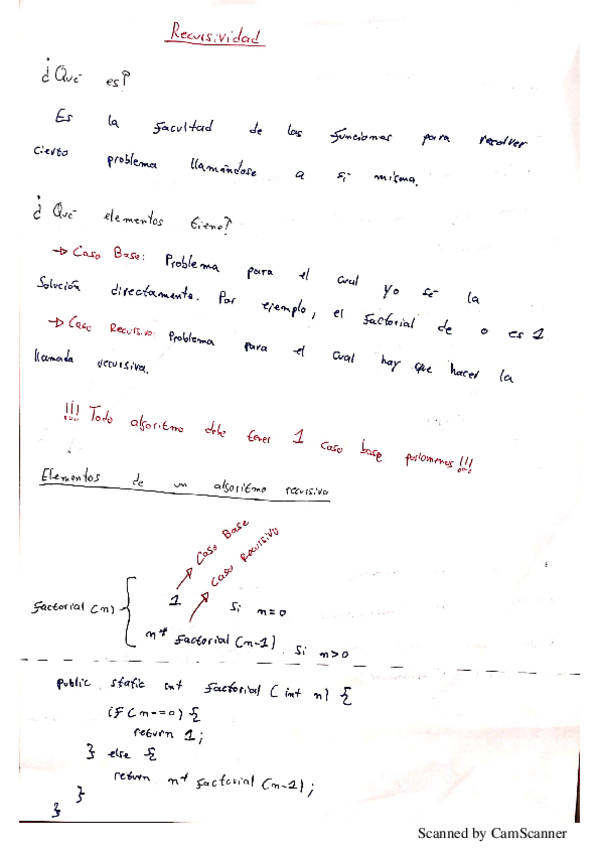 Recursividad
¿Qué es?
Es la facultad de las funciones para resolver
cierto problema llamándose a sí misma.
¿Qué elementos tiene?
→ Caso Base: Problema para el cual yo sé la
solución directamente. Por ejemplo, el factorial de 0 es 1.
→ Caso Recursivo: Problema para el cual hay que hacer la
llamada recursiva.
!!! Todo algoritmo debe tener 1 caso base porlomenos !!!
Elementos de un algoritmo recursivo
Caso Base
Caso Recursivo
factorial (n) { 1 si n=0
n* factorial (n-1) si n>0
public static int factorial (int n) {
if (n==0) {
return 1;
} else {
return n* factorial (n-1);
}
}
Scanned by CamScanner